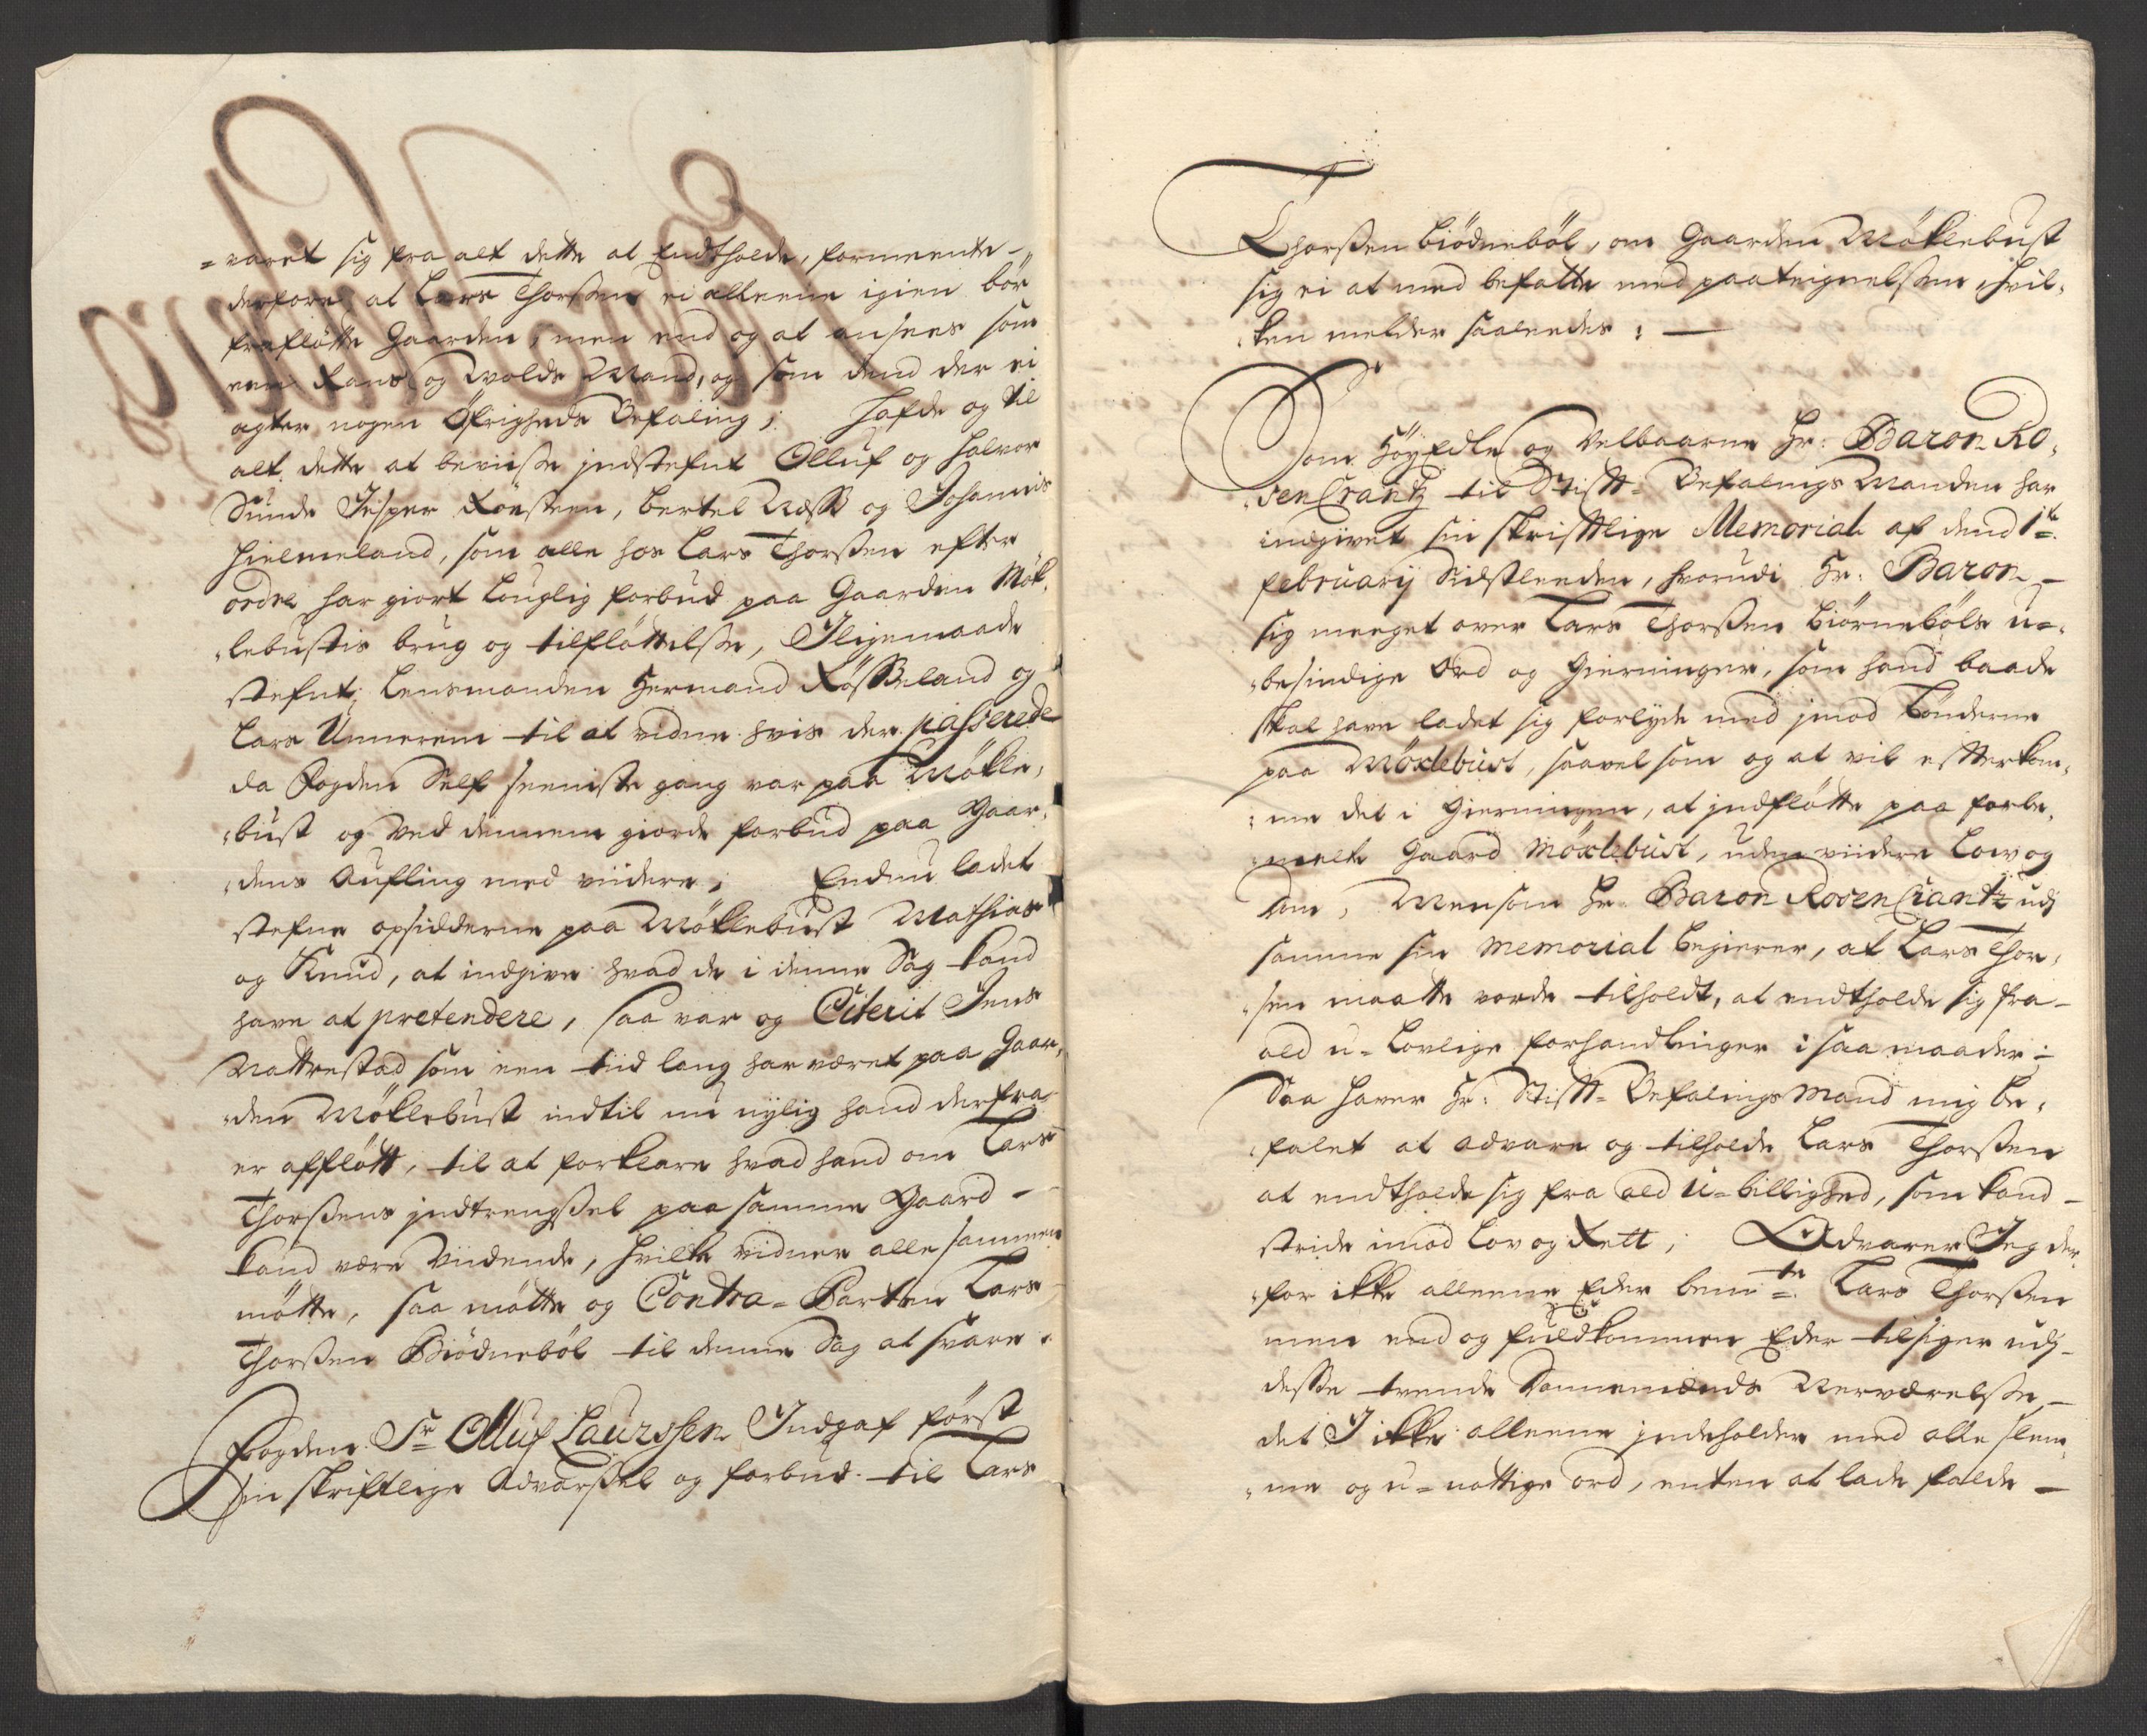 =varet sig fra alt dette at Endtholde, formeente –
derfore, at Lars Thorssen ei alleene igien bör
fraflötte Gaarden, men end og at ansees som
een Rans og Wolds Mand, og som dend der ei
agter nogen Öfrigheds Befaling; Hafde og til
alt dette at beviisse jndstefnt Olluf og Halvor
Sunde Jesper Rönsteen, Bertel Næss og Johannis
Hielmeland, som alle hos Lars Thorssen efter
ordre har giort Louglig forbud paa Gaarden Mök,
,lebustis brug og tilflöttelsse, Jligemaade
stefnt, Lensmanden Hermand Rösseland og
Lars Unnereim til at vidne hvis der passerede
da Fogden Self seeniste gang var paa Mökle,
,bust og ved dennem giorde forbud paa Gaar,
,dens Aufling med viidere; Endnu ladet
stefne opsidderne paa Möklebust Mathias
og Knud, at indgive hvad de i denne Sag kand
have at pretendere, saa var og Citerit Jens
Nattrestad som een tiid lang har været paa Gaar,
,den Möklebust indtil nu nylig hand derfra
er afflött, til at forklare hvad hand om Lars
Thorssens jndtrengssel paa samme Gaard –
kand være Viidende, hvilke vidner alle sammen
mötte, saa mötte og Contra=Parten Lars
Thorssen Biödneböl til denne Sag at svare.
Fogden Sr Olluf Laurssen Indgaf först
Sin skriftlige Advarssel og forbud til Lars
Thorssen Biödneböl, om Gaarden Möklebust
sig ei at med befatte med paateignelssen, hvil,
,ken melder saaledes: —
Som HöyEdle og Velbaarne Hr: Baron Ro,
,senCrantz til Stift=Befalings Manden har
indgivet sin skriftlige Memorial af dend 1te
februarij Sidstleeden, hvorudi Hr: Baron –
sig meeget over Lars Thorssen Biörneböls u=,
,besindige Ord og Gierninger, som hand baade
skal have ladet sig forlyde med jmod Bönderne
paa Möxlebust, saavel som og at vil efterkom,
,me det i Gierningen, at jndflötte paa forbe,
,meelte Gaard Möxlebust, uden viidere Low og
Dom, Men som Hr: Baron RosenCrantz udj
samme sin Memorial begierer, at Lars Thor,
,sen maatte vorde tilholdt, at endtholde sig fra –
ald u=Lovlige forhandlinger i saa maader;
Saa haver Hr: Stift=Befalings Mand mig be,
,falet at advare og tilholde Lars Thorssen
at endtholde sig fra ald U=billighed, som kand –
stride imod Lov og Rett; Advarer Jeg der
,for ikke alleene Eder bemte Lars Thorssen
men end og fuldkommen Eder tilsiger udj –
desse tvende Dannemænds Nerværelsse, –
det I ikke alleene jndeholder med alle slem,
,me og u=nottige ord, enten at lade falde –